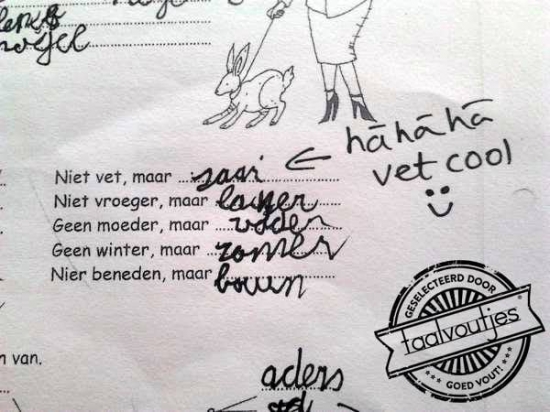 vogel
Niet vet, maar saai
hāhāhā
vet cool
Niet vroeger, maar later
Geen moeder, maar vader
Geen winter, maar zomer
Nier beneden, maar boven
GESELECTEERD DOOR
taalvoutjes®
GOED VOUT!
n van.
aders